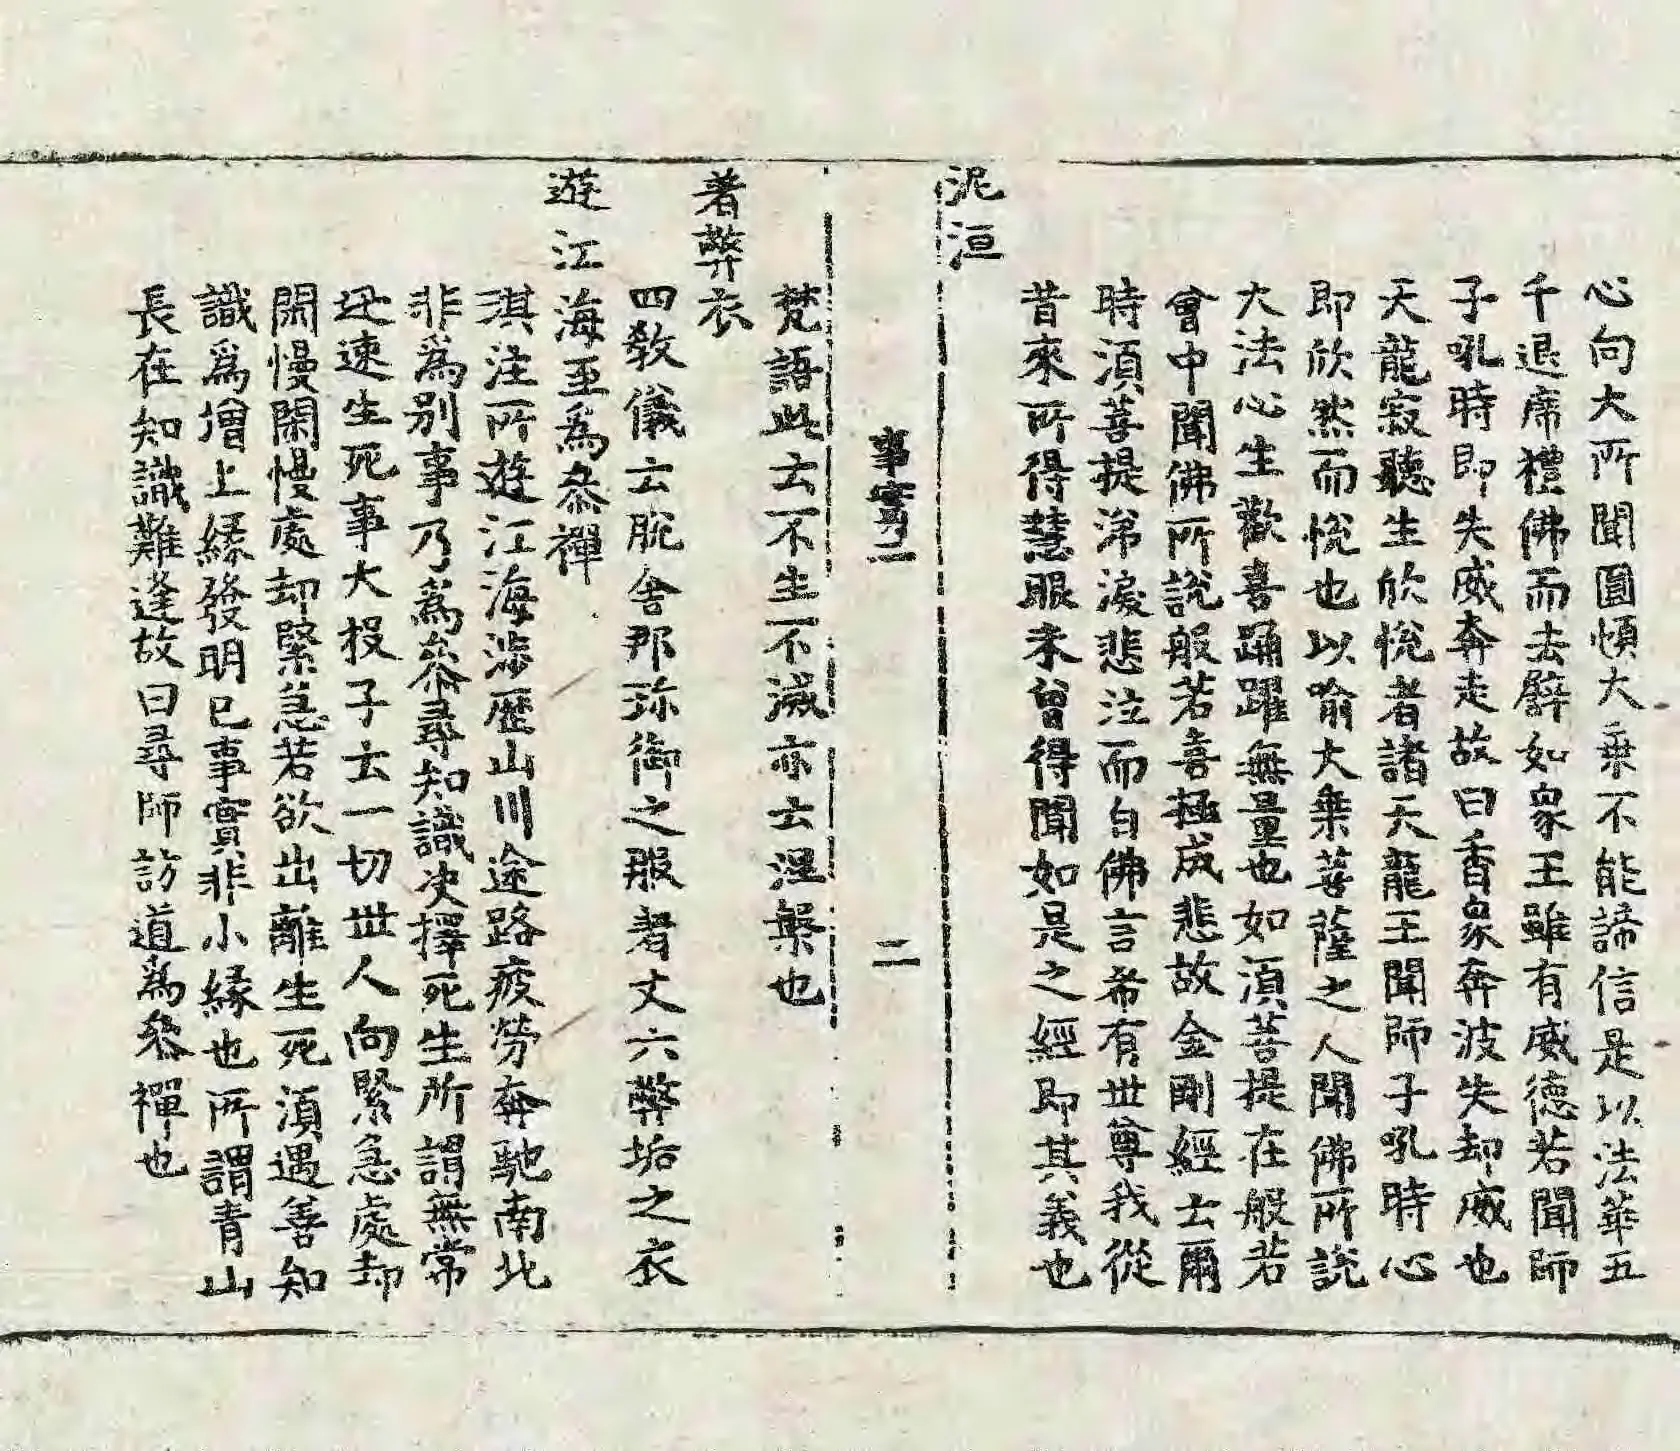 心向大所聞圓頓大乗不能諦信是以法華五
千退席禮佛而去譬如象王雖有威德若聞師
子吼時即失威奔走故曰香象奔波失却威也
天龍寂聽生欣悅者諸天龍王聞師子吼時心
即欣然而悅也以喻大乗菩薩之人聞佛所說
大法心生歡喜踊躍無量也如湏菩提在般若
會中聞佛所說般若喜極成悲故金剛經云爾
時湏菩提涕淚悲泣而白佛言希有世尊我從
昔來所得慧眼未曾得聞如是之經即其義也
泥洹
事實二 二
梵語此云不生不滅亦云涅槃也
著弊衣
四敎儀云脫舍那珎御之服著丈六弊垢之衣
遊江海至爲叅禪
淇注所遊江海涉歷山川途路疲勞奔馳南北
非爲别事乃爲叅尋知識决擇死生所謂無常
迅速生死事大投子云一切世人向緊急處却
閑慢閑慢處却緊急若欲出離生死湏遇善知
識爲增上緣發明已事實非小緣也所謂青山
長在知識難逢故曰尋師訪道爲叅禪也